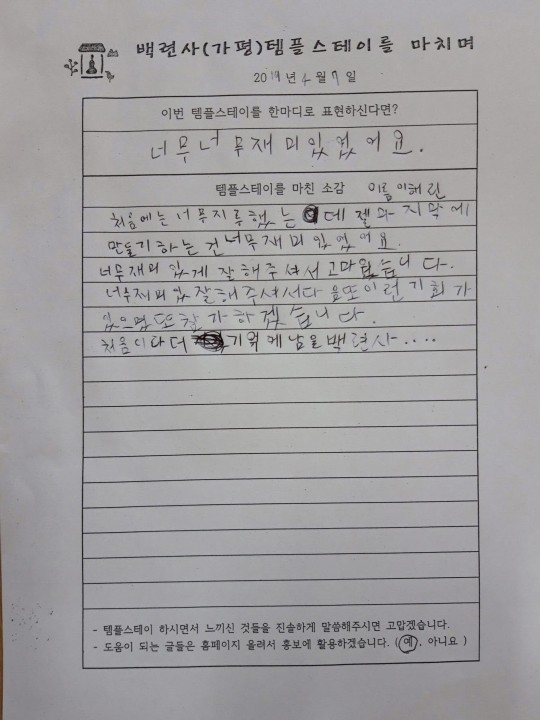 백련사(가평)템플스테이를 마치며
2019년 4월 7일
이번 템플스테이를 한마디로 표현하신다면?
너무너무재미있었어요.
템플스테이를 마친 소감 이름 이해린
처음에는 너무지루했는데 젤 마지막에
만들기 하는 건 너무재미있었어요.
너무재미있게 잘해주셔서 고마웠습니다.
너무재미있 잘해주셔서 다음또이런기회가
있으면또참가하겠습니다.
처음이다 더 기억에남을백련사....
- 템플스테이 하시면서 느끼신 것들을 진솔하게 말씀해주시면 고맙겠습니다.
- 도움이 되는 글들은 홈페이지 올려서 홍보에 활용하겠습니다. (예, 아니요)